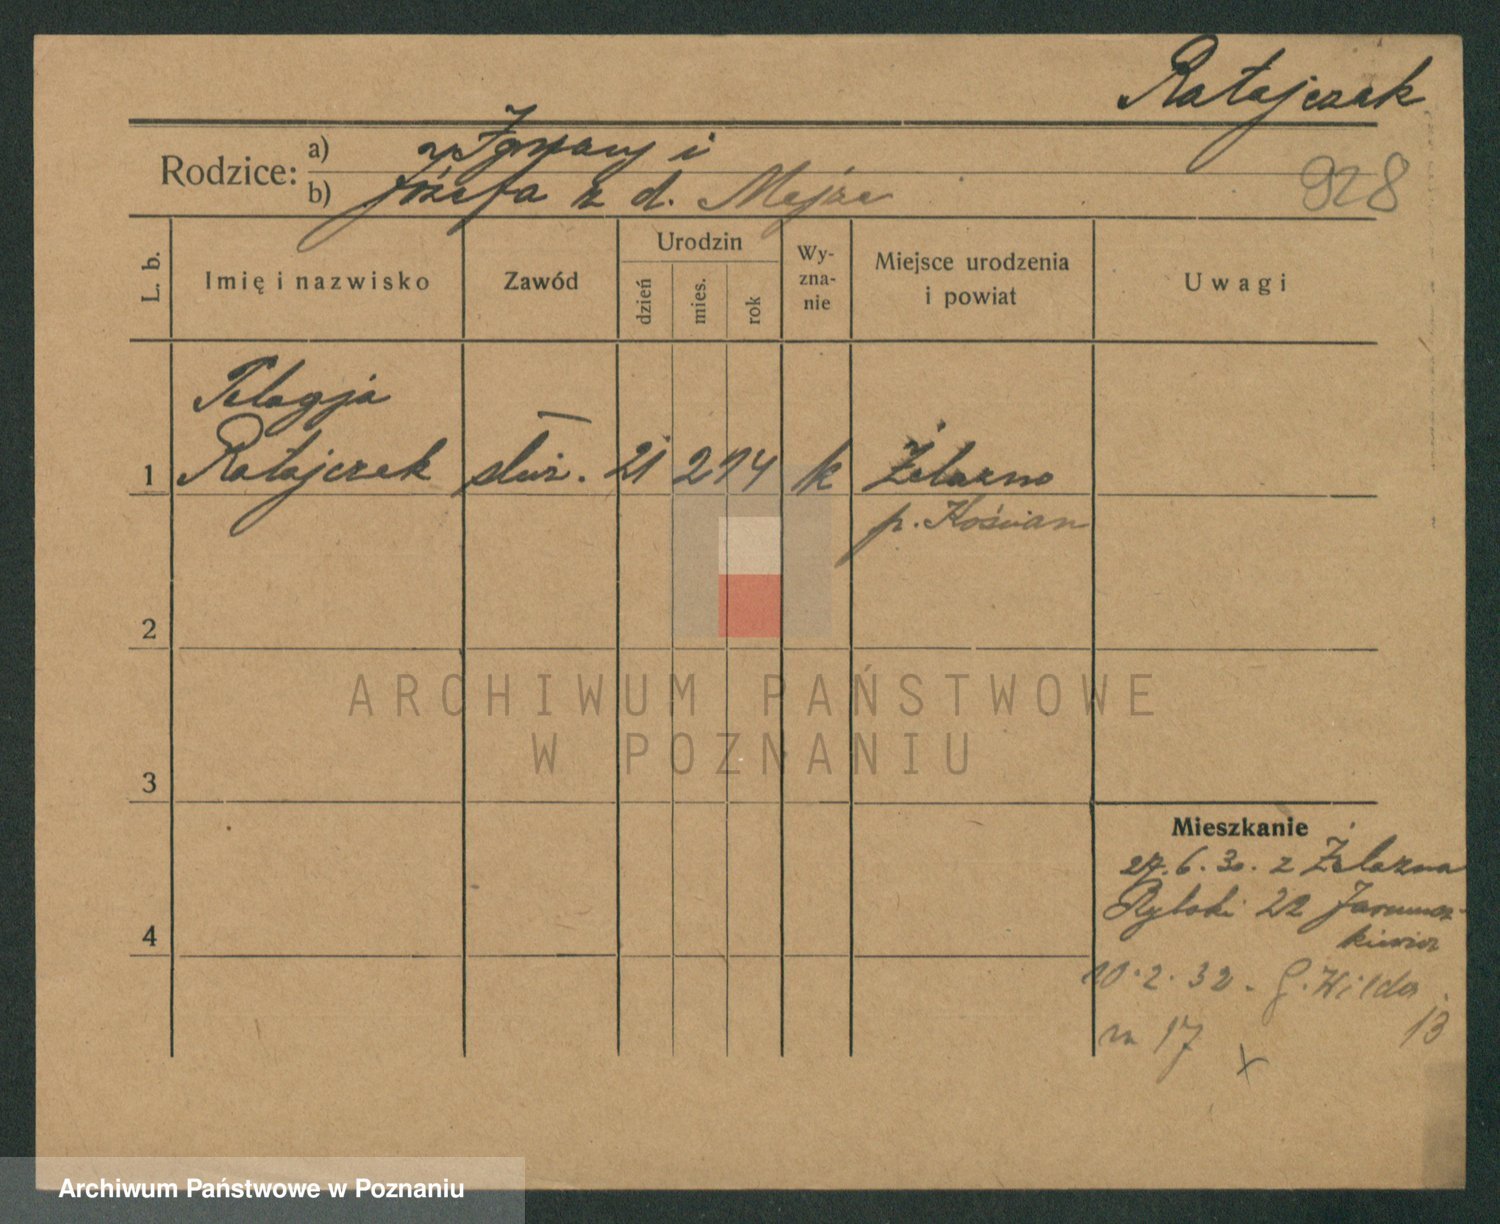 Ratajczak
Rodzice:
a) Ignacy i
b) Józefa z d. Mejza
928
L. b.
Imię i nazwisko
Zawód
Urodzin
dzień
mies.
rok
Wy-
zna-
nie
Miejsce urodzenia
i powiat
Uwagi
Pelagja
1 Ratajczak służ. 21 2 14 k Żelazno
p. Kościan
2
ARCHIWUM PAŃSTWOWE
W POZNANIU
3
Mieszkanie
27.6.30. z Żelazna
Rybaki 22
4
10.2.32. G. Wilda
13
m 17
x
Archiwum Państwowe w Poznaniu